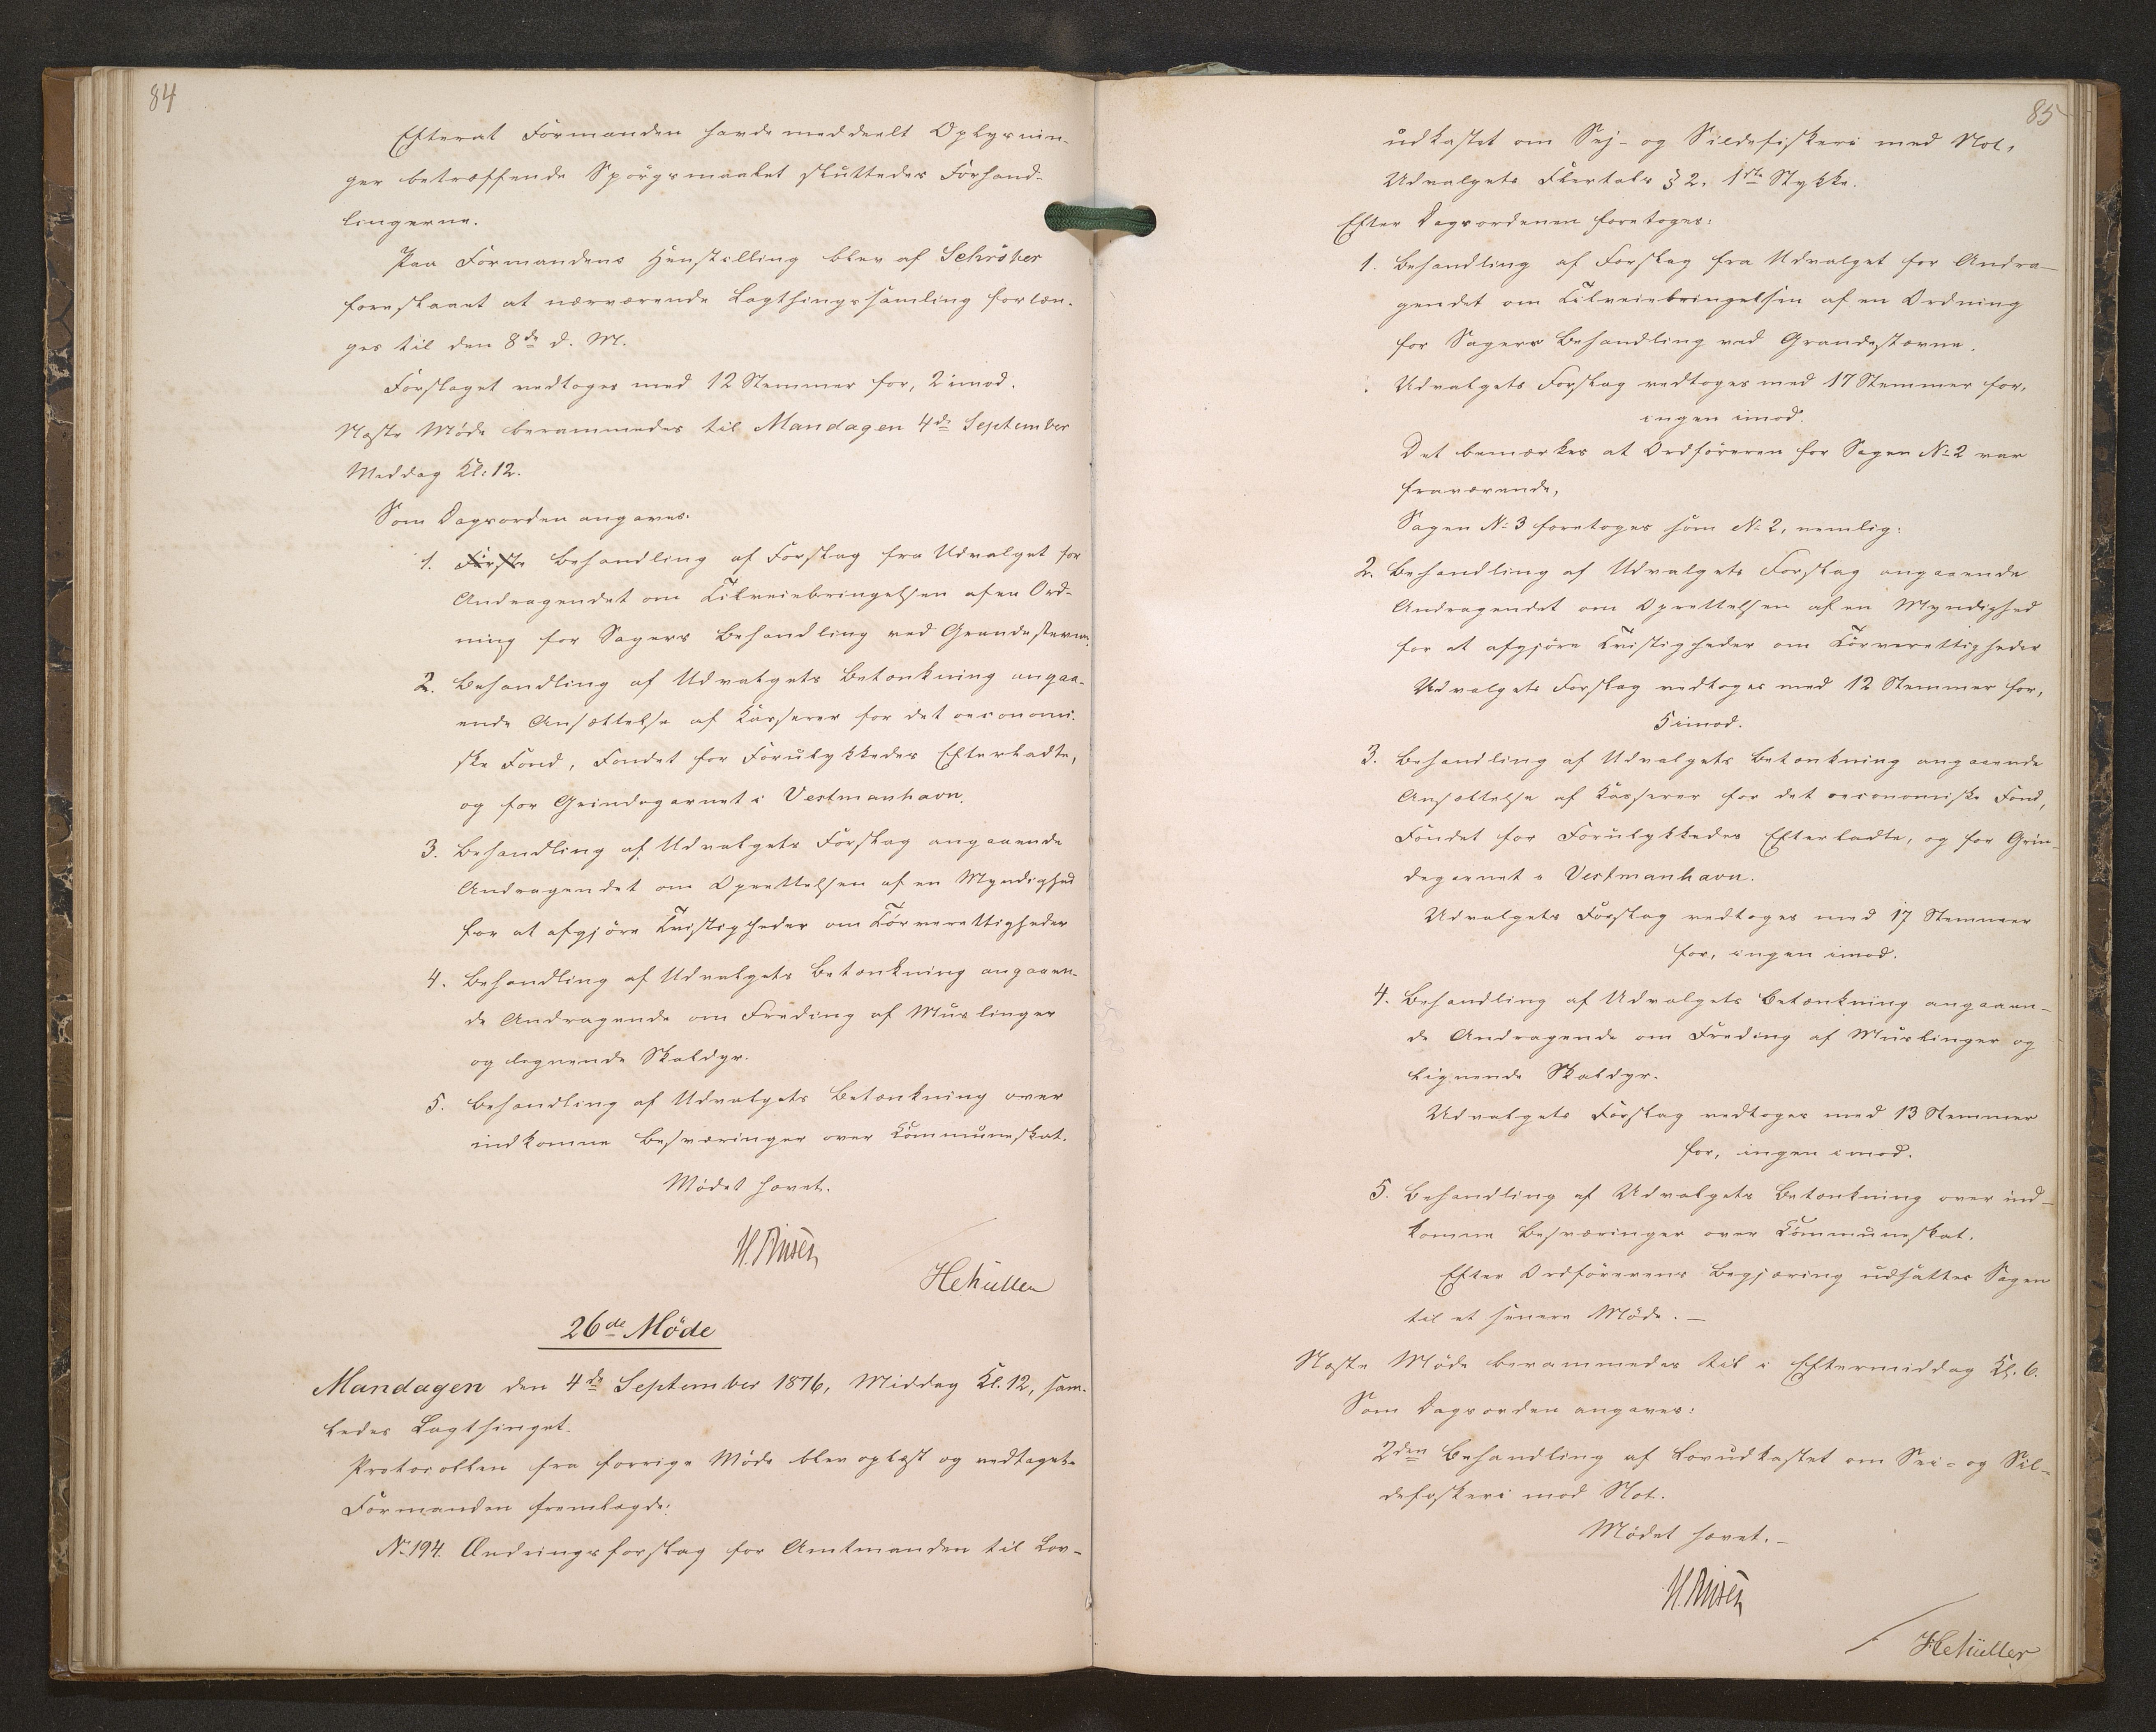 84
Efterat Formanden havde meddeelt Oplysnin-
ger betræffende Spörgsmaalet sluttedes Forhand-
lingerne.
Paa Formandens Henstilling blev af Schröter
foreslaaet at nærværende Lagthingssamling forlæn-
ges til den 8de d. M.
Forslaget vedtoges med 12 Stemmer for, 2 imod.
Næste Möde berammedes til Mandagen 4de September
Middag Kl: 12.
Som Dagsorden angaves:
1. Første Behandling af Forslag fra Udvalget for
Andragendet om Tilveiebringelsen af en Ord-
ning for Sagers Behandling ved Grandestævne.
2. Behandling af Udvalgets Betænkning angaa-
ende Ansættelse af Kasserer for det oeconomi-
ske Fond, Fondet for Forulykkedes Efterladte,
og for Grindegarnet i Vestmanhavn.
3. Behandling af Udvalgets Forslag angaaende
Andragendet om Oprettelsen af en Myndighed
for at afgjöre Tvistigheder om Törverettigheder
4. Behandling af Udvalgets Betænkning angaaen-
de Andragende om Freding af Muslinger
og lignende Skaldyr.
5. Behandling af Udvalgets Betænkning over
indkomne Besværinger over Kommuneskat.
Mödet hævet.
26de Möde
Mandagen den 4de September 1876, Middag Kl. 12, sam-
ledes Lagthinget.
Protocollen fra forrige Möde blev oplæst og vedtaget.
Formanden fremlagde:
No 194. Ændringsforslag for Amtmanden til Lov-
85
udkastet om Sej- og Sildefiskeri med Not,
Udvalgets Flertals § 2, 1ste Stykke.
Efter Dagsordenen foretoges:
1. Behandling af Forslag fra Udvalget for Andra-
gendet om Tilveiebringelsen af en Ordning
for Sagers Behandling ved Grandestævne.
Udvalgets Forslag vedtoges med 17 Stemmer for,
ingen imod.
Det bemærkes at Ordföreren for Sagen No 2 var
fraværende,
Sagen No 3 foretoges som No 2, nemlig:
2. Behandling af Udvalgets Forslag angaaende
Andragendet om Oprettelsen af en Myndighed
for at afgjöre Tvistigheder om Törverettigheder
Udvalgets Forslag vedtoges med 12 Stemmer for,
5 imod.
3. Behandling af Udvalgets Betænkning angaaende
Ansættelse af Kasserer for det oeconomiske Fond,
Fondet for Forulykkedes Efterladte, og for Grin-
degarnet i Vestmanhavn.
Udvalgets Forslag vedtoges med 17 Stemmer
for, ingen imod.
4. Behandling af Udvalgets Betænkning angaaen-
de Andragende om Freding af Muslinger og
lignende Skaldyr.
Udvalgets Forslag vedtoges med 13 Stemmer
for, ingen imod.
5. Behandling af Udvalgets Betænkning over ind-
komne Besværinger over Kommuneskat.
Efter Ordförerens Begjæring udsattes Sagen
til et senere Möde. -
Næste Möde berammedes til i Eftermiddag Kl. 6.
Som Dagsorden angaves:
2den Behandling af Lovudkastet om Sei- og Sil-
defiskeri med Not.
Mödet hævet. -